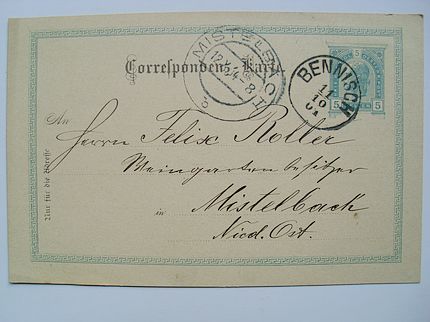 Correspondenz-Karte
MISTELBACH
12.5.04-8
BENNISCH
11
10
04
5 5
5 5
An
Herrn Felix Roller
Weingartenbesitzer
in Mistelbach
Nied. Öst.
Nur für die Adresse